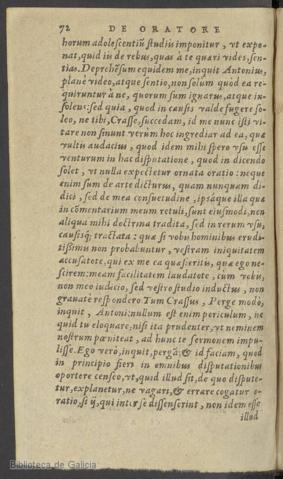 72 DE ORATORE
horum adolescentiũ studiis imponitur, vt expo-
nat, quid iis de rebus, quas à te quæri vides, sen-
tias. Deprehẽsum equidem me, inquit Antonius,
planè video, atque sentio, non solum quod ea re-
quiruntur à me, quorum sum ignarus, atque in-
solens: sed quia, quod in causis valde fugere so-
leo, ne tibi, Crasse, succedam, id me nunc isti vi-
tare non sinunt verùm hoc ingrediar ad ea, quæ
vultis audacius, quod idem mihi spero vsu esse
venturum in hac disputatione, quod in dicendo
solet, vt nulla expectetur ornata oratio: neque
enim sum de arte dicturus, quam nunquam di-
dici, sed de mea consuetudine, ipsáque illa quæ
in cõmentarium meum retuli, sunt eiusmodi, non
aliqua mihi doctrina tradita, sed in rerum vsu,
causisq́; tractata: quæ si vobis hominibus erudi-
tissimis non probabuntur, vestram iniquitatem
accusatote, qui ex me ea quæsieritis, quæ ego ne-
scirem: meam facilitatem laudatote, cum vobis,
non meo iudicio, sed vestro studio inductus, non
grauatè respondero Tum Crassus, Perge modò,
inquit, Antoni: nullum est enim periculum, ne
quid tu eloquare, nisi ita prudenter, vt neminem
nostrum pœniteat, ad hunc te sermonem impu-
lisse. Ego verò, inquit, pergã: & id faciam, quod
in principio fieri in omnibus disputationibus
oportere censeo, vt, quid illud sit, de quo dispute-
tur, explanetur, ne vagari, & errare cogatur o-
ratio, si ij, qui inter se dissenserint, non idem esse
illud
Biblioteca de Galicia